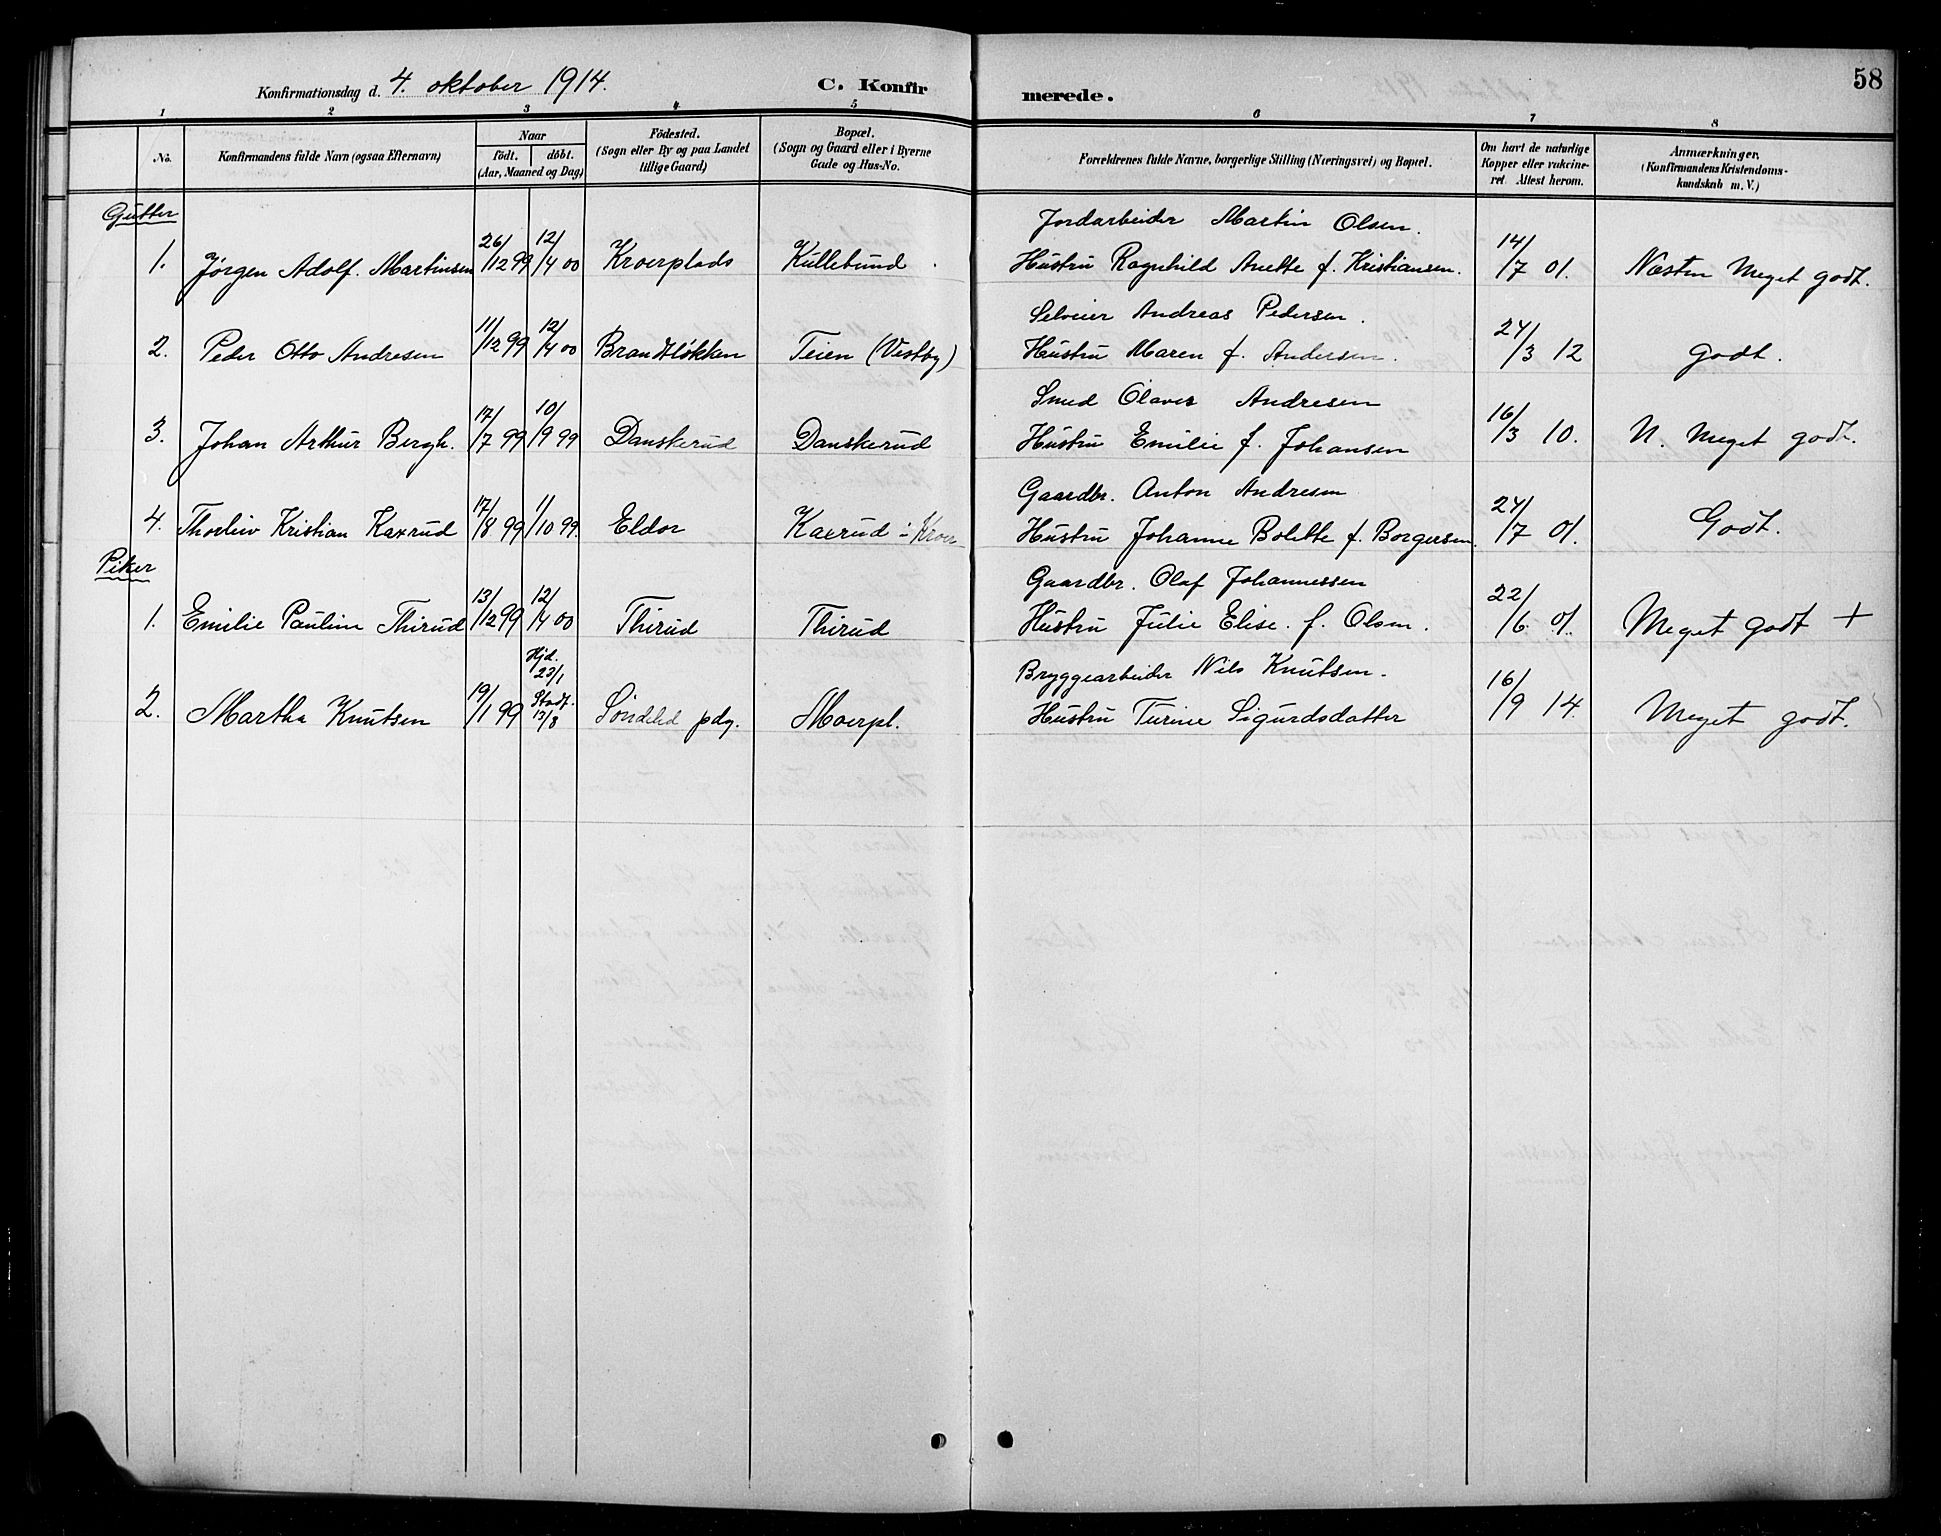 58
Konfirmationsdag d. 4. oktober 1914.
C. Konfirmerede.
1 2 3 4 5 6 7 8
No.
Konfirmandens fulde Navn (ogsaa Efternavn)
Naar
födt. döbt.
(Aar, Maaned og Dag)
Födested.
(Sogn eller By og paa Landet
tillige Gaard)
Bopæl.
(Sogn og Gaard eller i Byerne
Gade og Hus-No.
Forældrenes fulde Navne, borgerlige Stilling (Næringsvei) og Bopæl.
Om havt de naturlige
Kopper eller vakcine-
ret. Attest herom.
Anmærkninger.
(Konfirmandens Kristendoms-
kundskab m. V.)
Gutter
Jordarbeider Martin Olsen.
1. Jørgen Adolf. Martinsen 26/12 99 12/4 00 Kroerplads Kullebund. Hustru Ragnhild Anette f. Kristiansen. 14/7 01. Næsten Meget godt.
Selveier Andreas Pedersen.
2. Peder Otto Andresen 11/12 99 12/4 00 Brandtløkken Teien (Vestby) Hustru Maren f. Andersen. 24/3 12 godt.
Smed Olaves Andresen
3. Johan Arthur Bergh. 17/7 99 10/9 99 Danskerud Danskerud Hustru Emilie f. Johansen 16/3 10. N. Meget godt.
Gaardbr. Anton Andresen
4. Thorleiv Kristian Kaxrud 17/8 99 1/10 99. Eldor Kaxrud i Kroer Hustru Johanne Bolette f. Borgersen. 24/7 01. Godt.
Piker
Gaardbr. Olaf Johannessen
1. Emilie Pauline Thirud 13/12 99 12/4 00 Thirud Thirud Hustru Julie Elise. f. Olsen. 22/6 01. Meget godt +
Hjd.
23/1
Bryggearbeider Nils Knutsen.
2. Martha Knutsen 19/1 99 Stadf. 13/8 Søndeled pdg. Moerpl. Hustru Turine Sigurdsdatter 16/9 14. Meget godt.